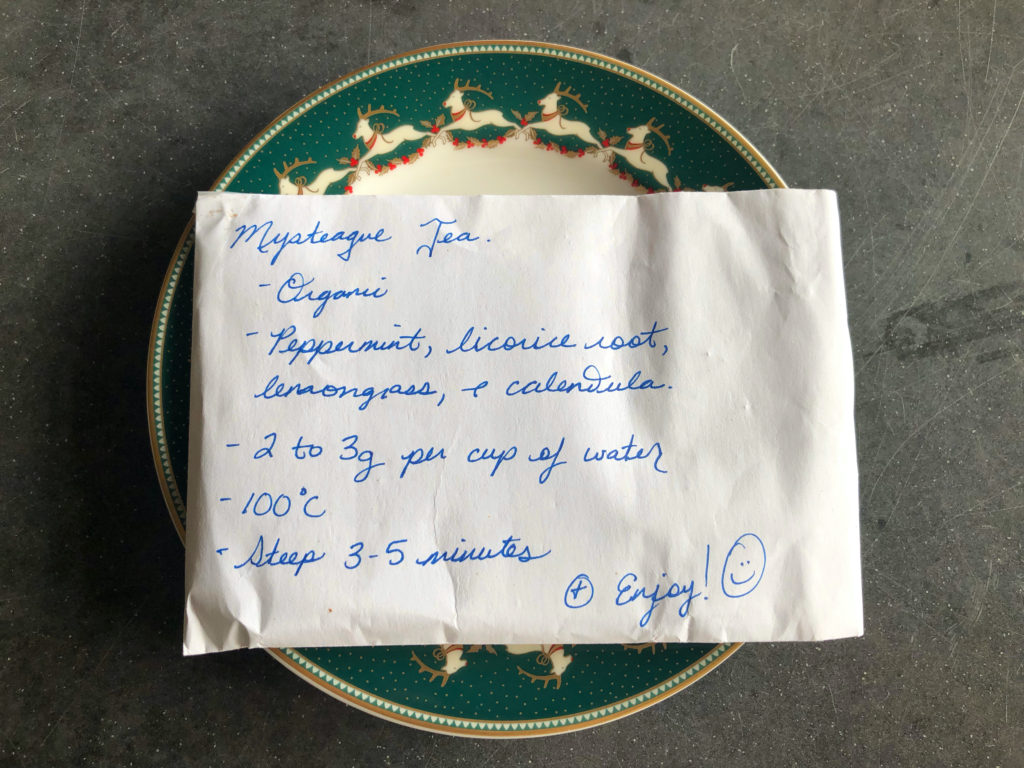 Mysteague Tea.
- Organic
- Peppermint, licorice root,
lemongrass, & calendula.
- 2 to 3g per cup of water
- 100°C
- Steep 3-5 minutes
+ Enjoy!